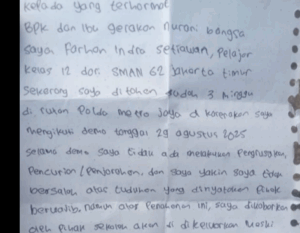 Kepada yang terhormat
BPK dan Ibu gerakan nurani bangsa
saya Farhan Indra Setiawan, Pelajar
Kelas 12 dari SMAN 62 Jakarta timur
Sekarang saya di tahan sudah 3 minggu
di rutan Polda metro Jaya di karenakan saya
mengikuti demo tanggal 29 agustus 2025
selama demo saya tidak ada melakukan Pengrusakan,
Pencurian / Penjarahan, dan saya yakin saya tidak
bersalah atas tuduhan yang dinyatakan Pihak
berwajib, namun atas Penahanan ini, saya
oleh Pihak sekolah akan di di keluarkan